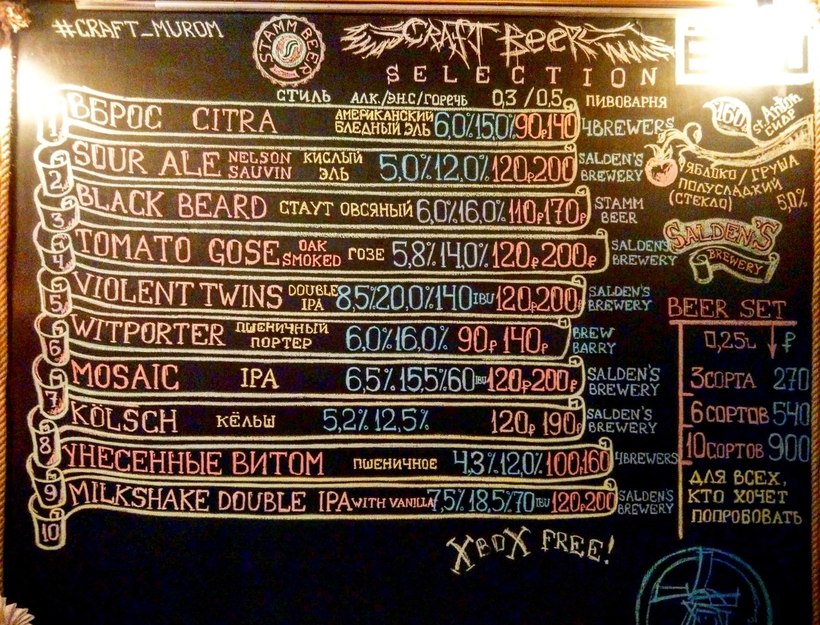 #CRAFT_MUROM
STAMM BEER
CRAFT BEER
SELECTION
СТИЛЬ АЛК./Э.Н.С/ГОРЕЧЬ 0,3 / 0,5 ПИВОВАРНЯ
1 ВБРОС CITRA АМЕРИКАНСКИЙ БЛЕДНЫЙ ЭЛЬ 6,0% 15,0% 90₽ 140 4BREWERS
2 SOUR ALE NELSON SAUVIN КИСЛЫЙ ЭЛЬ 5,0% 12,0% 120₽ 200₽ SALDEN'S BREWERY
3 BLACK BEARD СТАУТ ОВСЯНЫЙ 6,0% 16,0% 110₽ 170₽ STAMM BEER
4 TOMATO GOSE OAK SMOKED ГОЗЕ 5,8% 14,0% 120₽ 200₽ SALDEN'S BREWERY
5 VIOLENT TWINS DOUBLE IPA 8,5% 20,0% 140 IBU 120₽ 200₽ SALDEN'S BREWERY
6 WITPORTER ПШЕНИЧНЫЙ ПОРТЕР 6,0% 16,0% 90₽ 140₽ BREW BARRY
7 MOSAIC IPA 6,5% 15,5% 60 IBU 120₽ 200₽ SALDEN'S BREWERY
8 KÖLSCH КЁЛЬШ 5,2% 12,5% 120₽ 190₽ SALDEN'S BREWERY
9 УНЕСЕННЫЕ ВИТОМ ПШЕНИЧНОЕ 4,3% 12,0% 100₽ 160 4BREWERS
10 MILKSHAKE DOUBLE IPA WITH VANILLA 7,5% 18,5% 70 IBU 120₽ 200 SALDEN'S BREWERY
XBOX FREE!
160
St. Anton
СИДР
ЯБЛОКО / ГРУША
ПОЛУСЛАДКИЙ
(СТЕКЛО) 5,0%
SALDEN'S
BREWERY
BEER SET
0,25л ₽
3 СОРТА 270
6 СОРТОВ 540
10 СОРТОВ 900
ДЛЯ ВСЕХ,
КТО ХОЧЕТ
ПОПРОБОВАТЬ